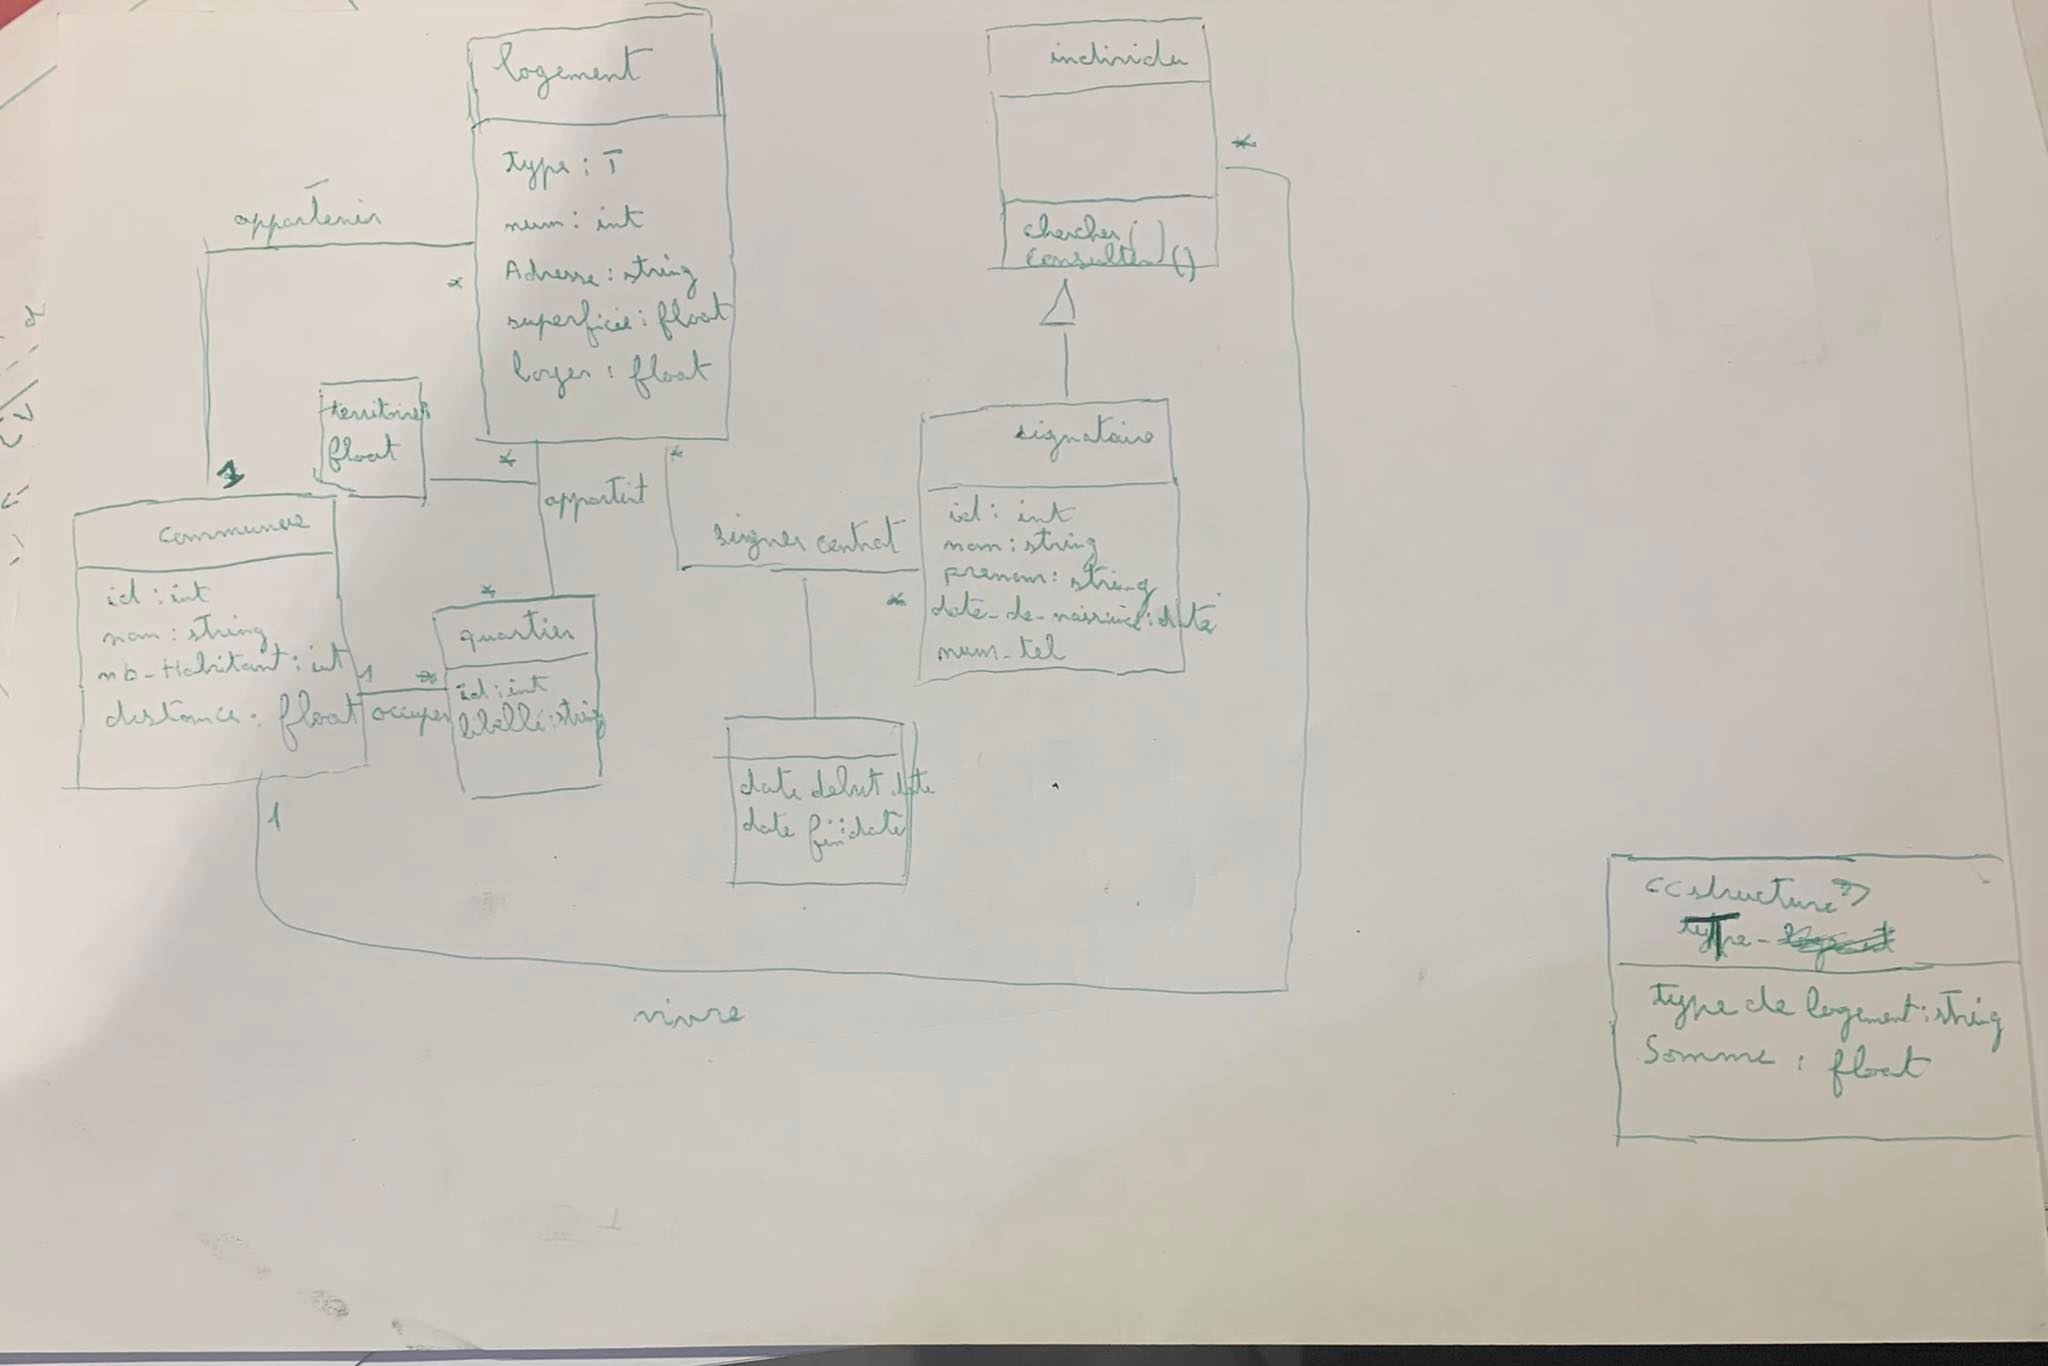 logement
type : T
num : int
Adresse : string
superficie : float
loyer : float
individu
chercher ( )
consulter ( )
*
appartenir
*
1
territoires
float
*
appartint
*
*
signer contrat
*
signataire
id : int
nom : string
prenom : string
date_de_naissince : date
num_tel
communes
id : int
nom : string
nb_Habitant : int
distance : float
1 *
occuper
quartier
id : int
libellé : string
date debut : date
date fin : date
1
vivre
<<structure>>
type de logement : string
Somme : float